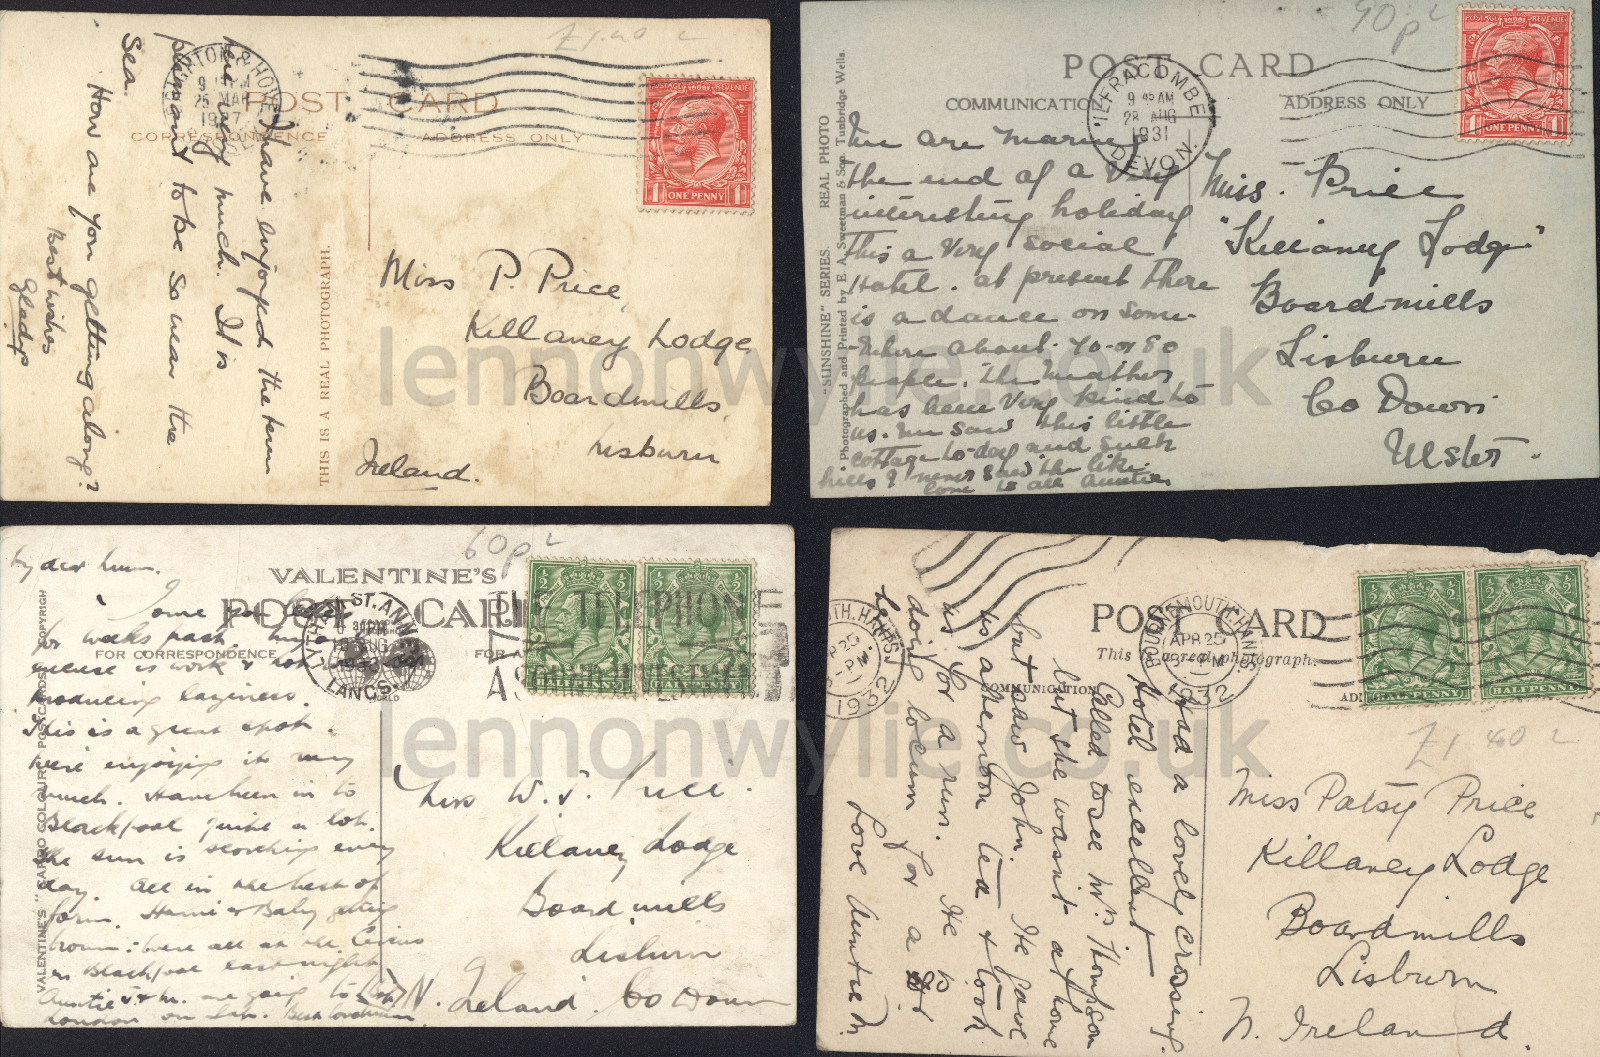 £1.40
BRIGHTON & HOVE
9 PM
25 MAR
1927
POST CARD
CORRESPONDENCE
ADDRESS ONLY
POSTAGE REVENUE
1 ONE PENNY 1
I have enjoyed the term
here very much. It is
pleasant to be so near the
sea.
How are you getting along?
Best wishes
Gladys
THIS IS A REAL PHOTOGRAPH.
Miss P. Price,
Killaney Lodge,
Boardmills,
Lisburn
Ireland.
90p
POST CARD
COMMUNICATION
ADDRESS ONLY
ILFRACOMBE
9 45 AM
28 AUG
1931
DEVON.
POSTAGE REVENUE
1 ONE PENNY 1
"SUNSHINE" SERIES. REAL PHOTO
Photographed and Printed by E. A. Sweetman & Son, Tunbridge Wells.
We are nearing
the end of a very
interesting holiday
this a very social
Hotel. at present there
is a dance on some-
where about 70 or 80
people. The weather
has been very kind to
us. We saw this little
cottage to-day and such
hills I never saw the like
love to all Auntie
Miss. Price
"Killaney Lodge"
Boardmills
Lisburn
Co Down
Ulster.
60p
VALENTINE'S
POST CARD
FOR CORRESPONDENCE
FOR
LYTHAM ST. ANNES
AUG
LANCS.
TELEPHONE
HALFPENNY
VALENTINE'S "CARBO COLOUR" POSTCARDS COPYRIGHT
My dear
for weeks past. my only
excuse is work & hot
producing laziness.
This is a great spot.
We're enjoying it very
much. Have been in to
Blackpool quite a lot.
The sun is scorching every
day. All in the best of
form. & Baby getting
brown: We're all at the Circus
in Blackpool last night
Auntie are going to
London on Best love
W. J. Price.
Killaney Lodge
Boardmills
Lisburn
N. Ireland. Co Down
BOURNEMOUTH. HANTS.
APR 25
1932
POST CARD
This is a real photograph.
COMMUNICATION
BOURNEMOUTH. HANTS.
APR 25
PM
1932
HALFPENNY
HALFPENNY
£1.40
Had a lovely crossing.
Hotel excellent
Called to see Mrs Thompson
but she wasn't at home
but saw John. He gave
us afternoon tea & took
us for a run. He is
doing locum for a Dr
here
Love Auntie M.
Miss Patsy Price
Killaney Lodge
Boardmills
Lisburn
N. Ireland.
lennonwylie.co.uk
lennonwylie.co.uk